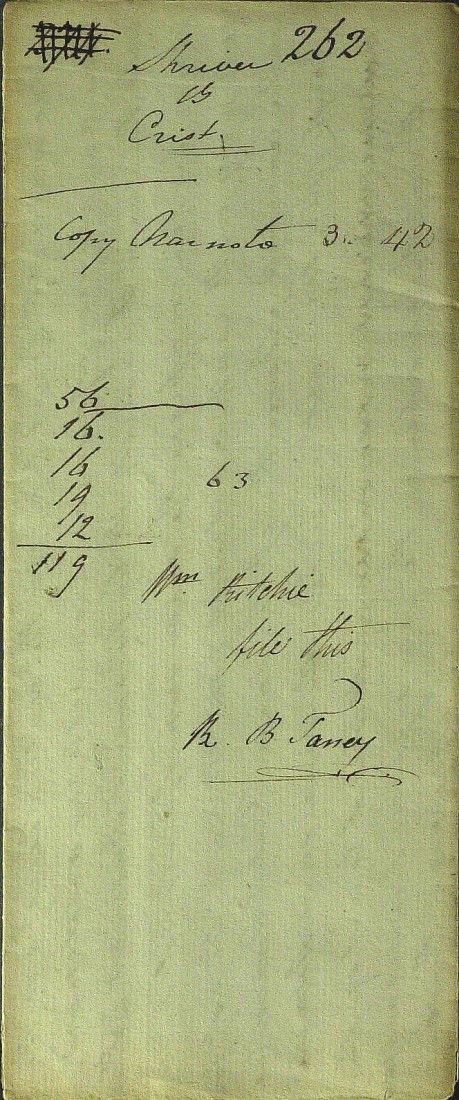 Shriver 262
vs
Crist
Copy Nar note 3. 42
56
16.
16
19
12
119
63
Wm Ritchie
file this
R. B Taney